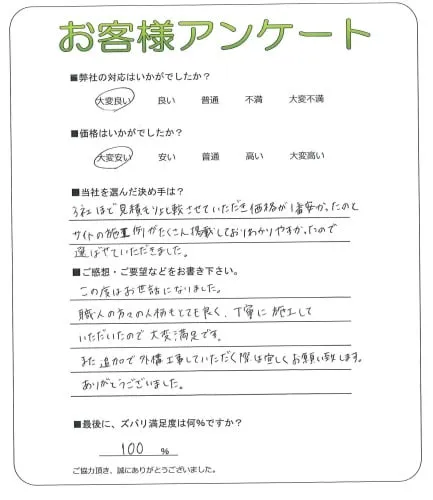 お客様アンケート
■弊社の対応はいかがでしたか？
大変良い 良い 普通 不満 大変不満
■価格はいかがでしたか？
大変安い 安い 普通 高い 大変高い
■当社を選んだ決め手は？
3社ほど見積もり比較させていただき価格が1番安かったのと
サイトの施工例がたくさん掲載しておりわかりやすかったので
選ばせていただきました。
■ご感想・ご要望などをお書き下さい。
この度はお世話になりました。
職人の方々の人柄もとても良く、丁寧に施工して
いただいたので大変満足です。
また追加で外構工事していただく際は宜しくお願い致します。
ありがとうございました。
■最後に、ズバリ満足度は何％ですか？
100 ％
ご協力頂き、誠にありがとうございました。